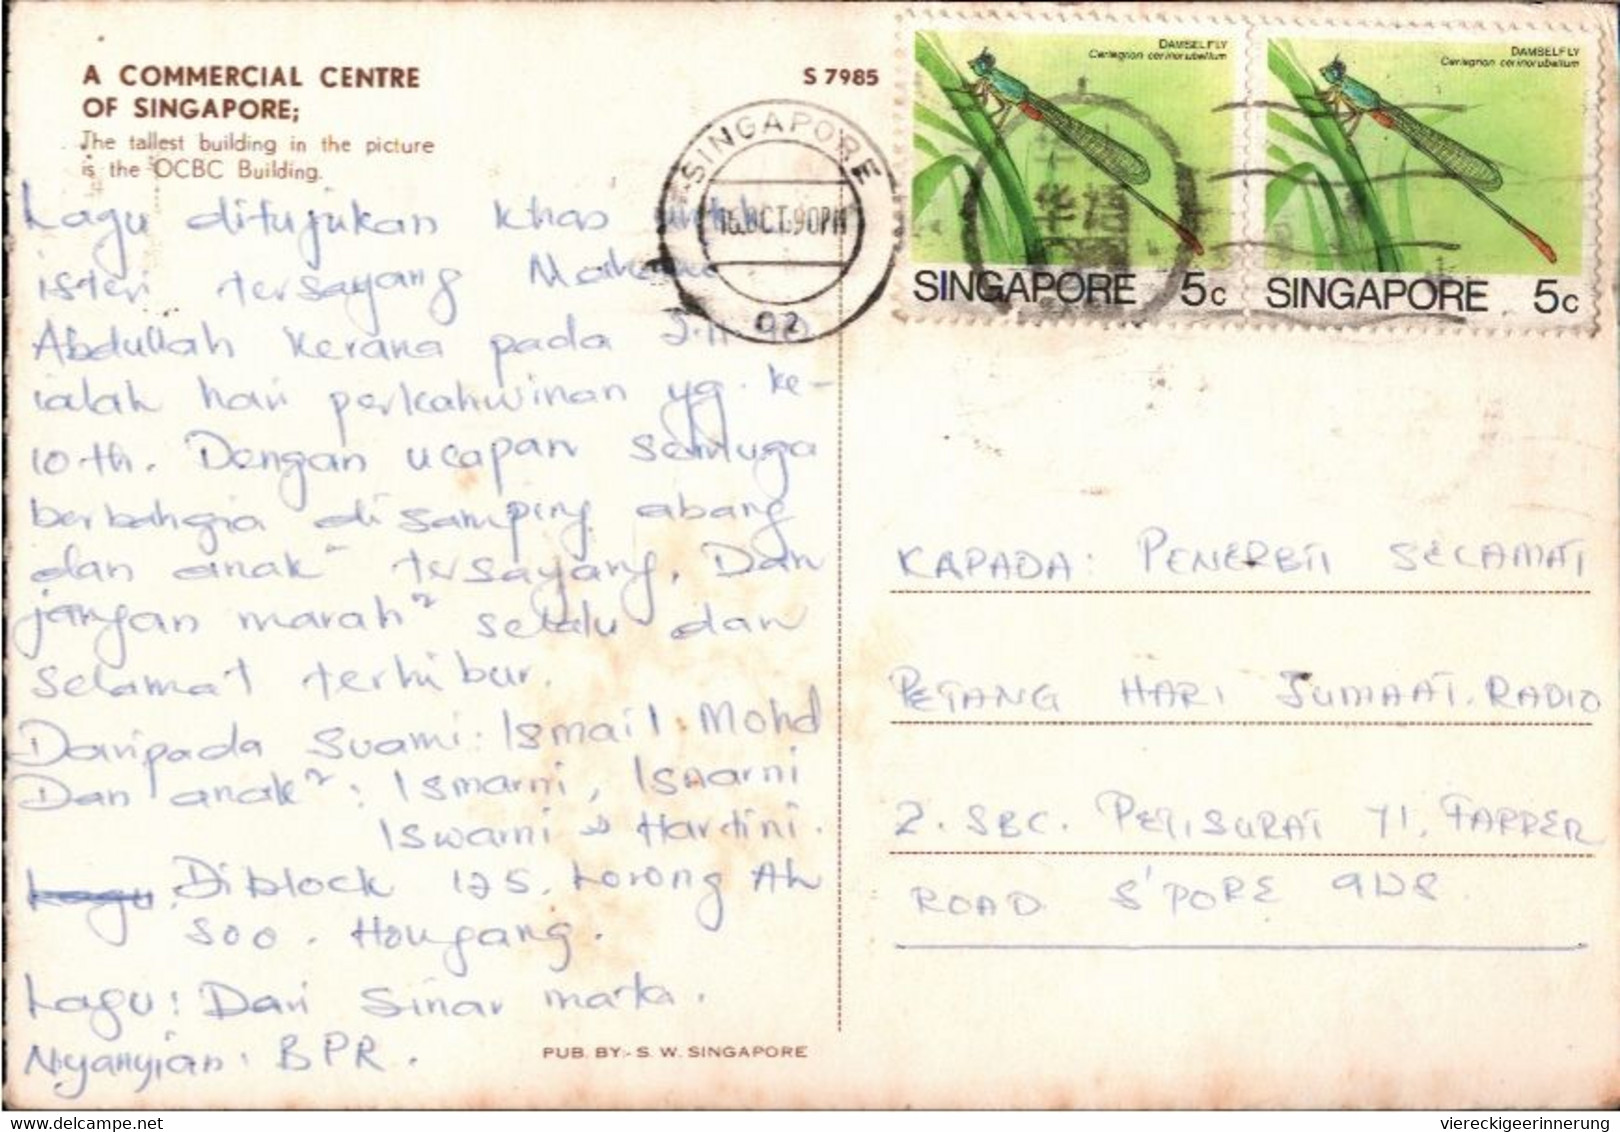 A COMMERCIAL CENTRE
OF SINGAPORE;
The tallest building in the picture
is the OCBC Building.
S 7985
SINGAPORE
16 OCT 90 PM
02
DAMSELFLY
Ceriagrion cerinorubellum
SINGAPORE 5c
DAMSELFLY
Ceriagrion cerinorubellum
SINGAPORE 5c
华语
Lagu ditujukan khas untuk
isteri tersayang
Abdullah Kerana pada
ialah hari perkahwinan yg. ke-
10th. Dengan ucapan semuga
berbahgia disamping abang
dan anak tersayang. Dan
jangan marah² selalu dan
selamat terhibur.
Daripada Suami: Ismail Mohd
Dan anak²: Ismarni, Isnarni
Iswarni & Hardini.
Lagu. Diblock 125. Lorong Ah
Soo. Hougang.
Lagu: Dari Sinar mata.
Nyanyian: BPR.
PUB. BY:- S. W. SINGAPORE
KAPADA: PENERBIT SELAMAT
PETANG HARI JUMAAT. RADIO
2. SBC. PETI SURAT 71, FARRER
ROAD S'PORE 9128
viereckigeerinnerung